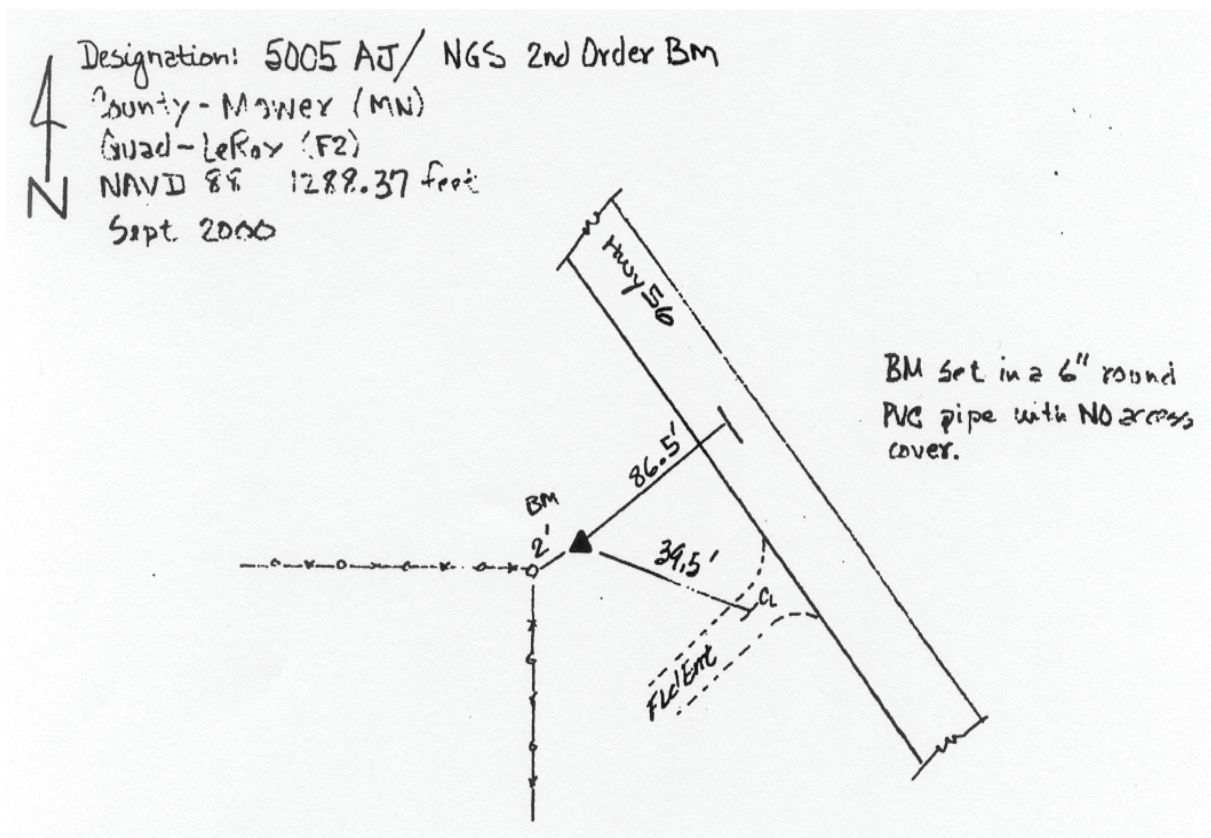 Designation: 5005 AJ/ NGS 2nd Order BM
County - Mower (MN)
Quad - LeRoy (F2)
NAVD 88 1288.37 feet
N
Sept. 2000
Hwy 56
BM set in a 6" round
PVC pipe with NO access
cover.
86.5'
BM
2'
39.5'
CL
Fld Ent